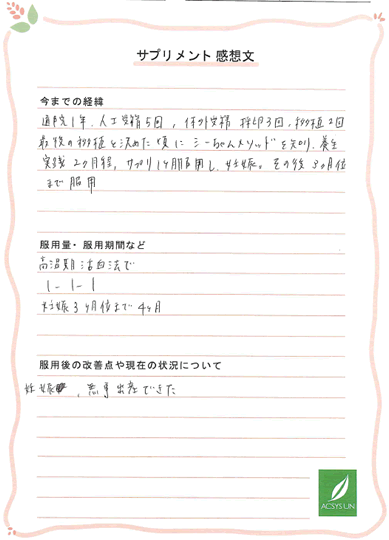 サプリメント 感想文
今までの経緯
通院1年、人工受精5回、体外受精 採卵3回、移植2回
最後の移植と決めた頃にミーちゃんメソッドを知り、養生
実践2ヶ月程、サプリ1ヶ月服用し、妊娠。その後3ヶ月位
まで服用
服用量・服用期間など
高温期活血法で
1-1-1
妊娠3ヶ月位まで4ヶ月
服用後の改善点や現在の状況について
妊娠、無事出産できた
ACSYS LIN